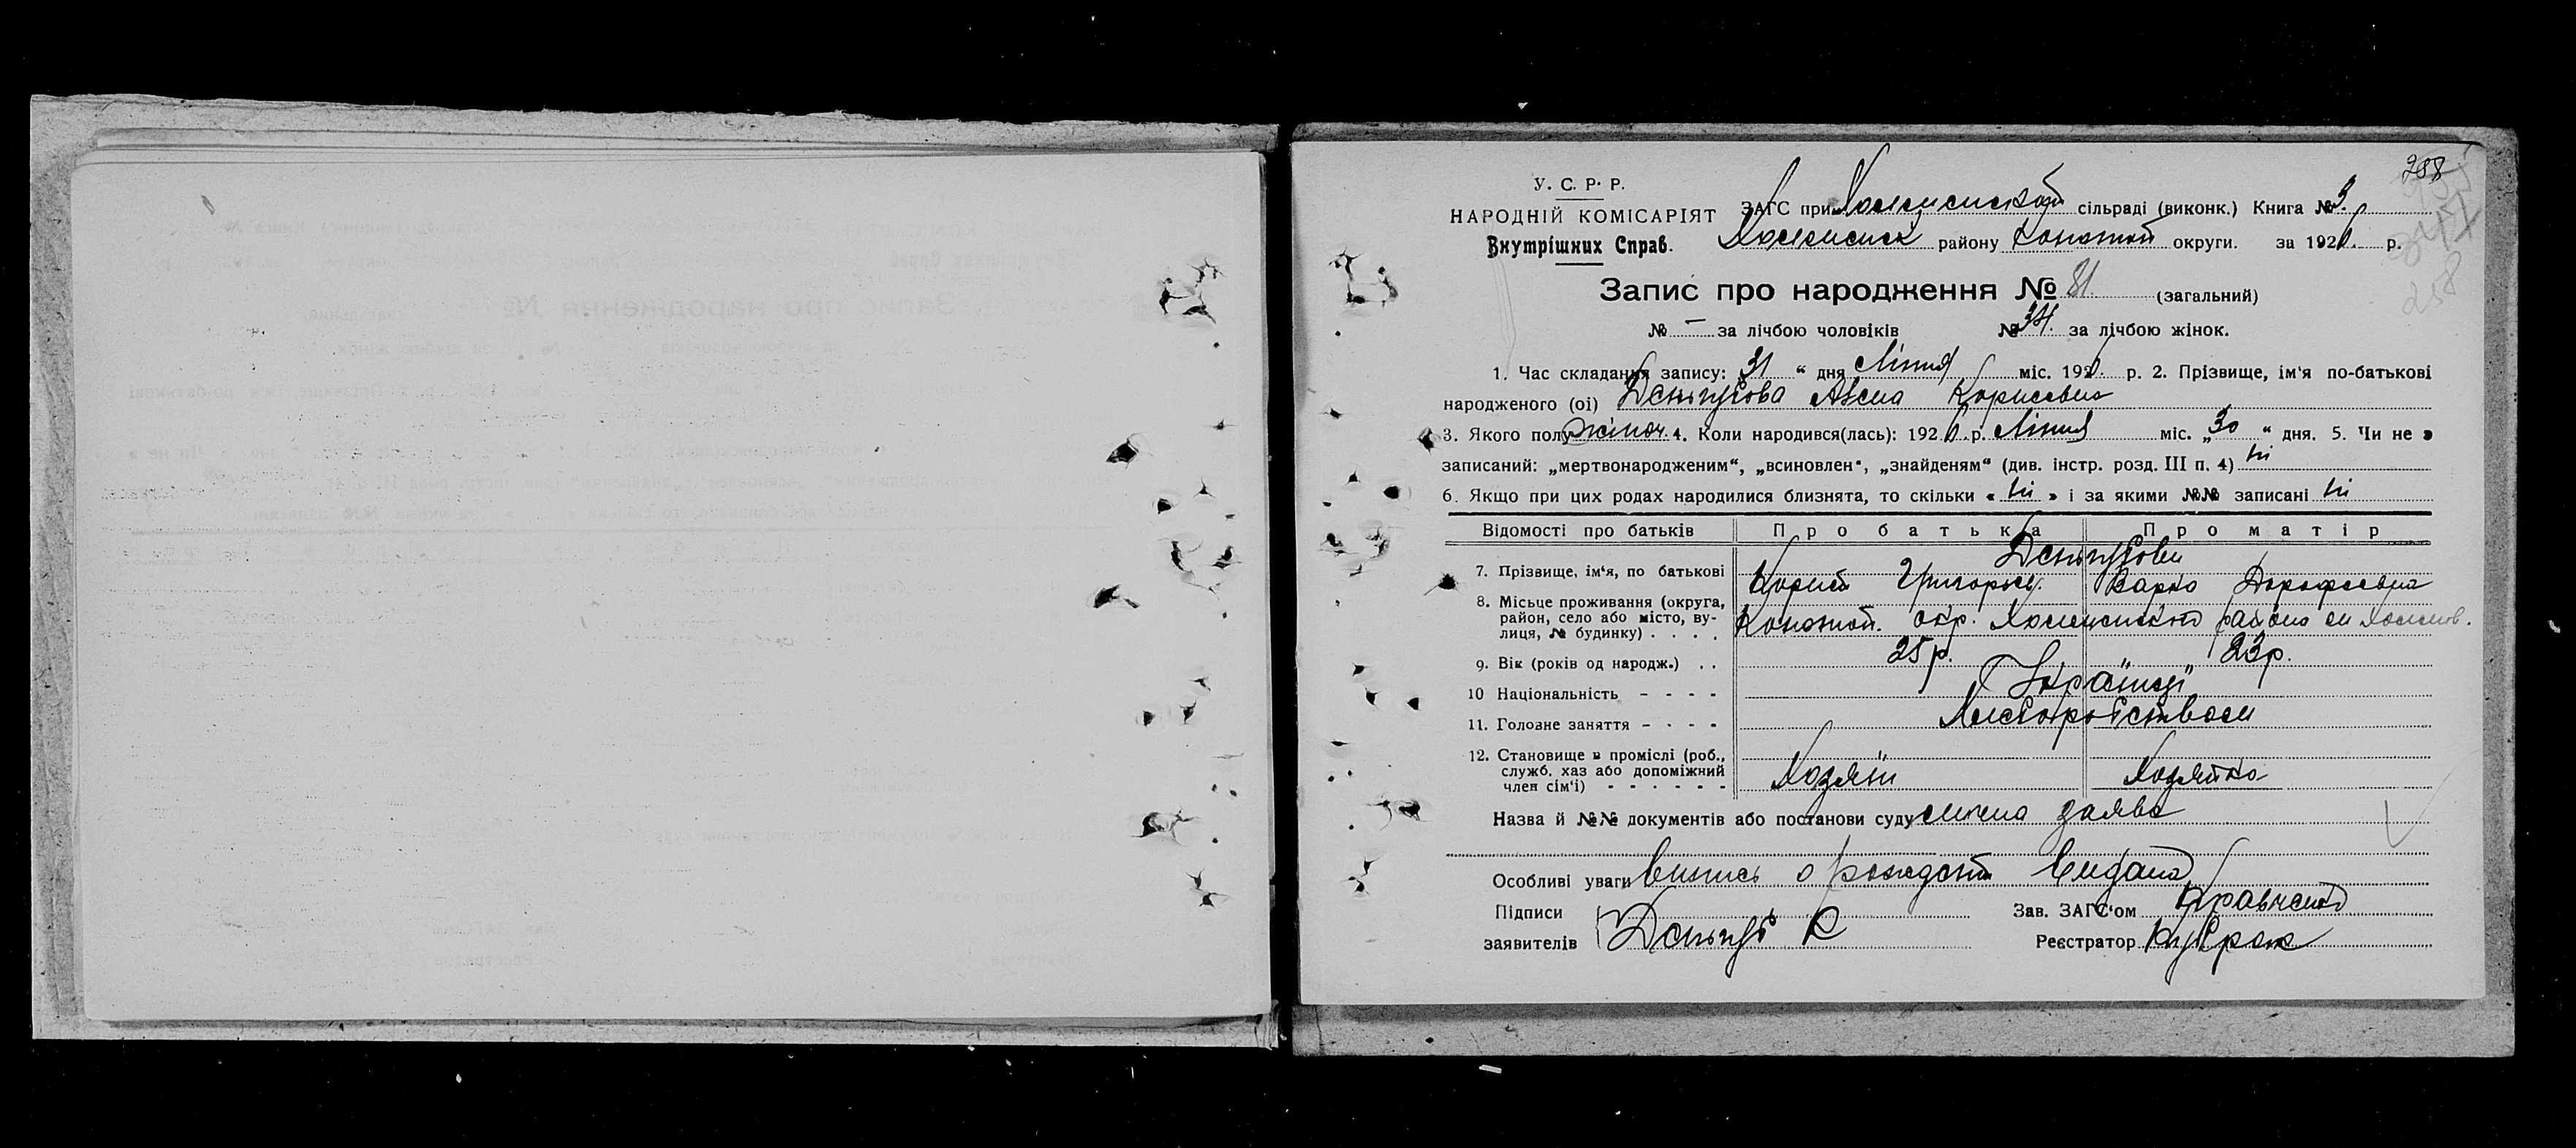 288
У. С. Р. Р.
НАРОДНІЙ КОМІСАРІЯТ ЗАГС при сільраді (виконк.) Книга № 3.
Внутрішних Справ. району Конотоп округи. за 1926. р.
Запис про народження № 81. (загальний)
№ — за лічбою чоловіків № 34. за лічбою жінок.
1. Час складання запису: 31 “ дня Липня міс. 1926. р. 2. Прізвище, ім'я по-батькові
народженого (ої) Борисовна
3. Якого полу жіноч. 4. Коли народився(лась): 1926. р. Липня міс. „ 30 “ дня. 5. Чи не э
записаний: „мертвонародженим“, „всиновлен“, „знайденям“ (див. інстр. розд. III п. 4) ні
6. Якщо при цих родах народилися близнята, то скільки « ні » і за якими №№ записані ні
Відомості про батьків Про батька Про матір
7. Прізвище, ім'я, по батькові Борис Григорьев. Варка Дорофеевна
8. Місьце проживання (округа, район, село або місто, вулиця, № будинку) . . . . Конотоп. окр. району
9. Вік (років од народж.) . . 25 р. 23 р.
10 Національність - - - - Українці
11. Головне заняття - - - - Хліборобством
12. Становище в проміслі (роб., служб. хаз або допоміжний член сім'ї) - - - - - - Хозяїн Хозяйка
Назва й №№ документів або постанови суду устна заява
Особливі уваги Випись о рождении видана
Підписи Зав. ЗАГС'ом Кравченко
заявителів Реєстратор